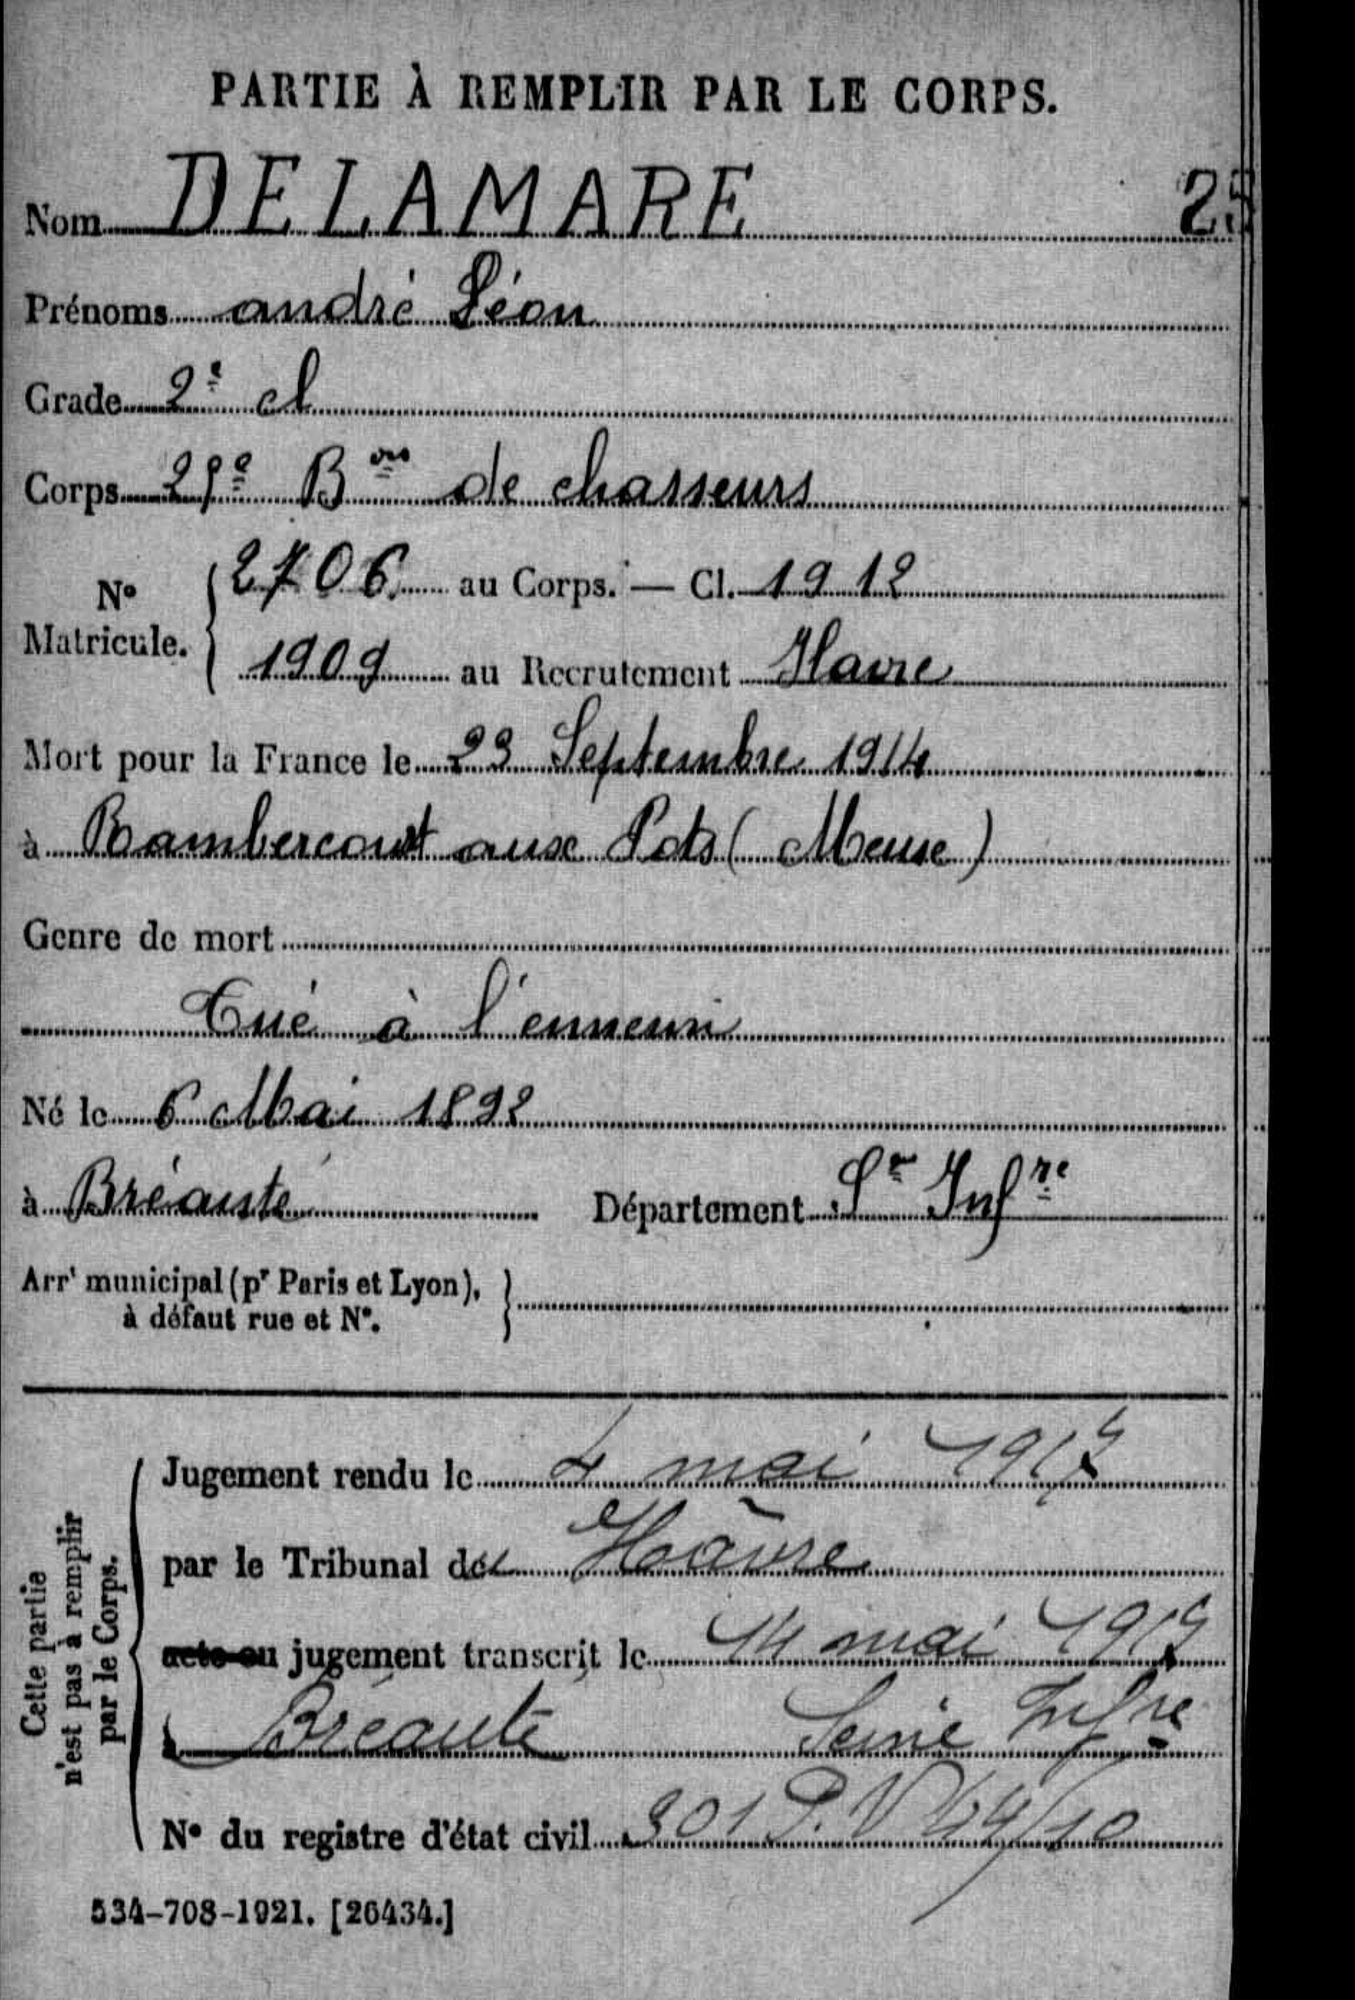 PARTIE À REMPLIR PAR LE CORPS.
Nom DELAMARE 25
Prénoms andré Léon
Grade 2e cl
Corps 25e Bon de chasseurs
No Matricule. { 2706 au Corps. — Cl. 1912
1909 au Recrutement Havre
Mort pour la France le 23 Septembre 1914
à Rambercourt aux Pots (Meuse)
Genre de mort
Tué à l'ennemi
Né le 6 Mai 1892
à Bréauté Département Sne Infre
Arrt municipal (pr Paris et Lyon), à défaut rue et No. }
Cette partie n'est pas à remplir par le Corps.
Jugement rendu le 4 mai 1917
par le Tribunal du Hâvre
acte ou jugement transcrit le 14 mai 1917
à Bréauté Seine Infre
No du registre d'état civil
534-708-1921. [26434.]